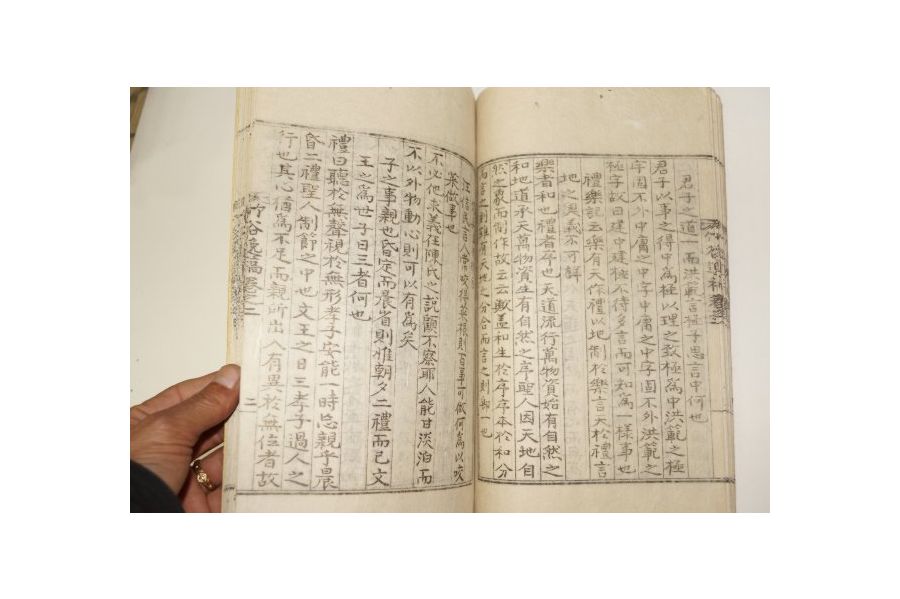 君子之道一而洪範言極子思言中何也
君子以事之得中為極以理之致極為中洪範之極
字固不外中庸之中字中庸之中字固不外洪範之
極字故曰建中建極不待多言而可知為一樣事也
禮樂記云樂有天作禮以地制於樂言天於禮言
地之奧義亦可詳
樂者和也禮者序也天道流行萬物資始有自然之
和地道承天萬物資生有自然之序聖人因天地自
然之象而制作故云云歟盖和生於序序本於和分
而言之則雖有天地之分合而言之則為一也
汪信民言人常咬得菜根則百事可做何為以咬
菜做事也
不必他求義在陳氏之說顧不察耶人能甘淡泊而
不以外物動心則可以有為矣
子之事親也昏定而晨省則惟朝夕二禮而已文
王之為世子日三者何也
禮曰聽於無聲視於無形孝子安能一時忘親乎晨
昏二禮聖人制節之中也文王之日三孝子過人之
行也其心猶為不足而親所出入有異於無位者故
竹谷逸稿卷之二
二